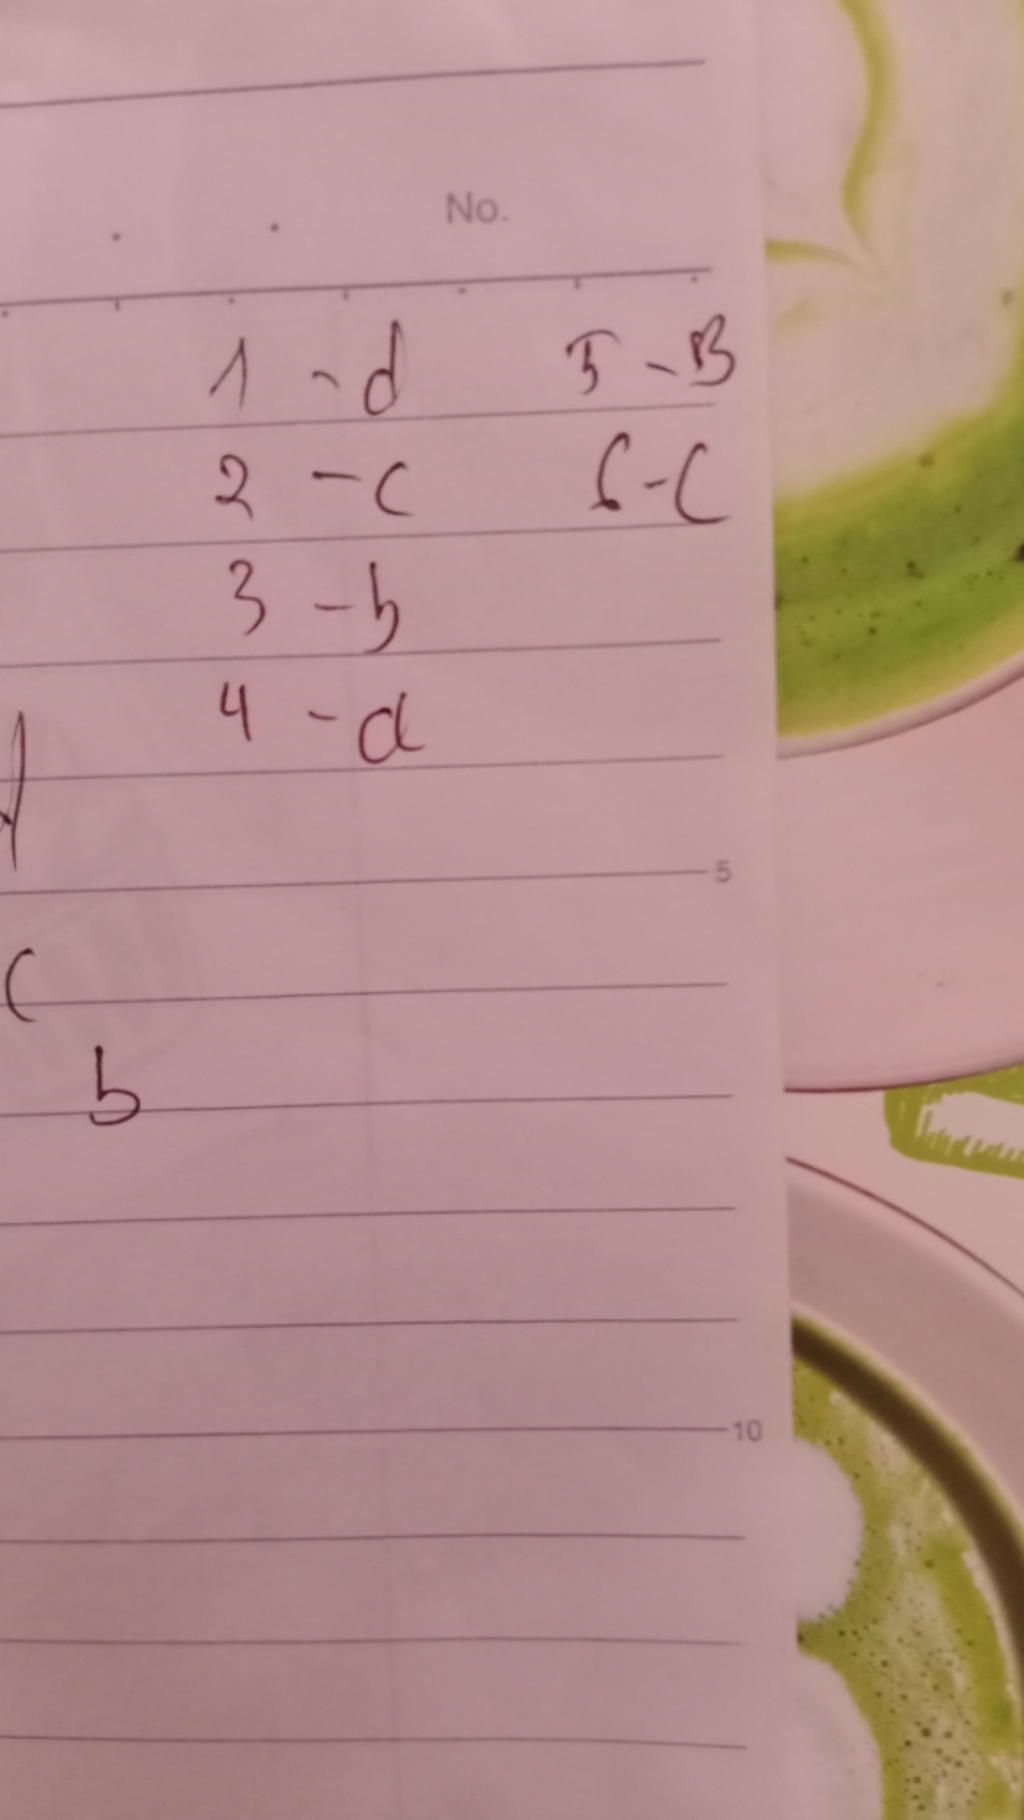 No.
1 - d 5 - B
2 - c 6 - C
3 - b
4 - d
d
5
c
b
10